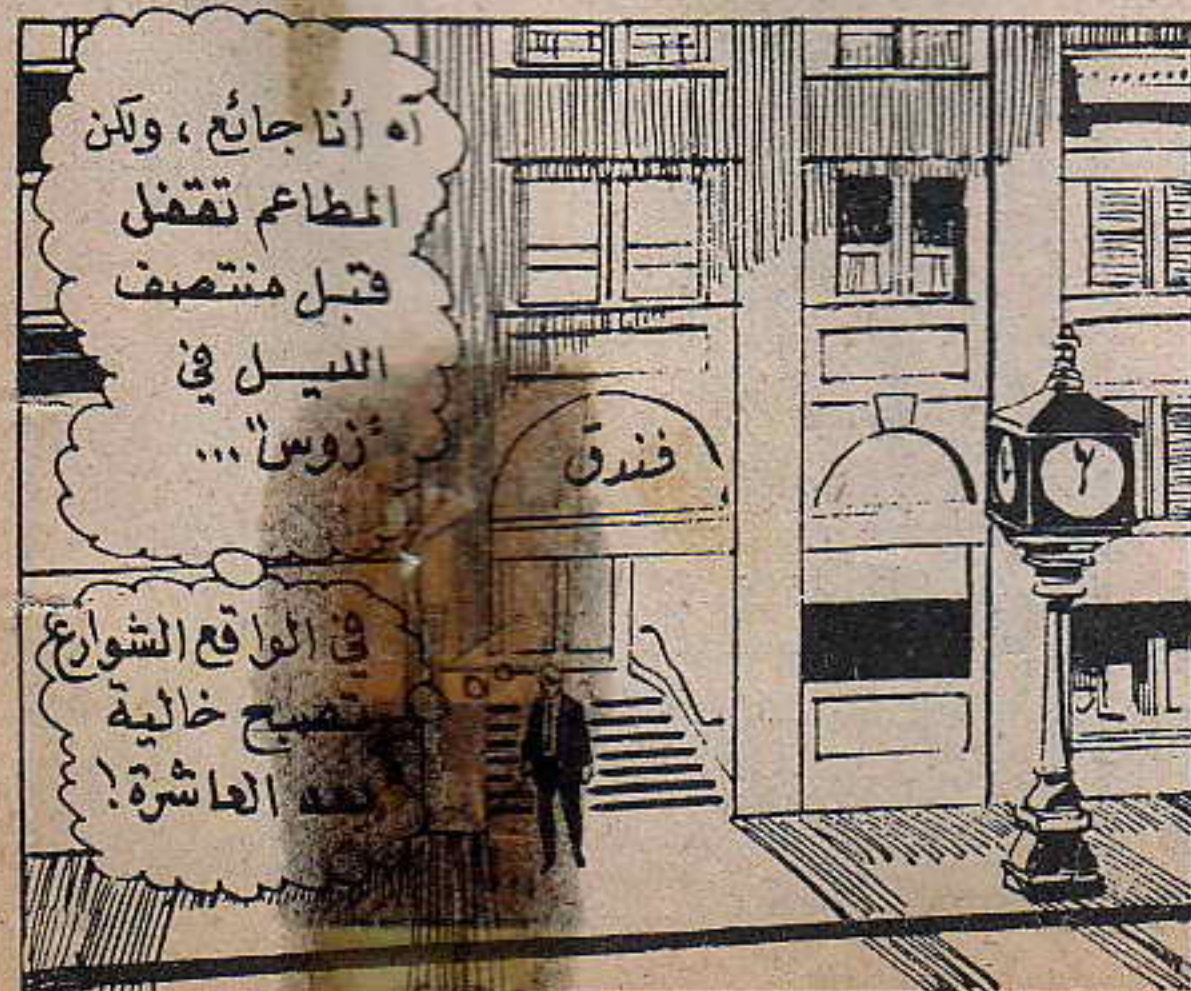 آه أنا جائع ، ولكن
المطاعم تقفل
قبل منتصف
الليل في
"زوس"...
في الواقع الشوارع
تصبح خالية
بعد العاشرة!
فندق